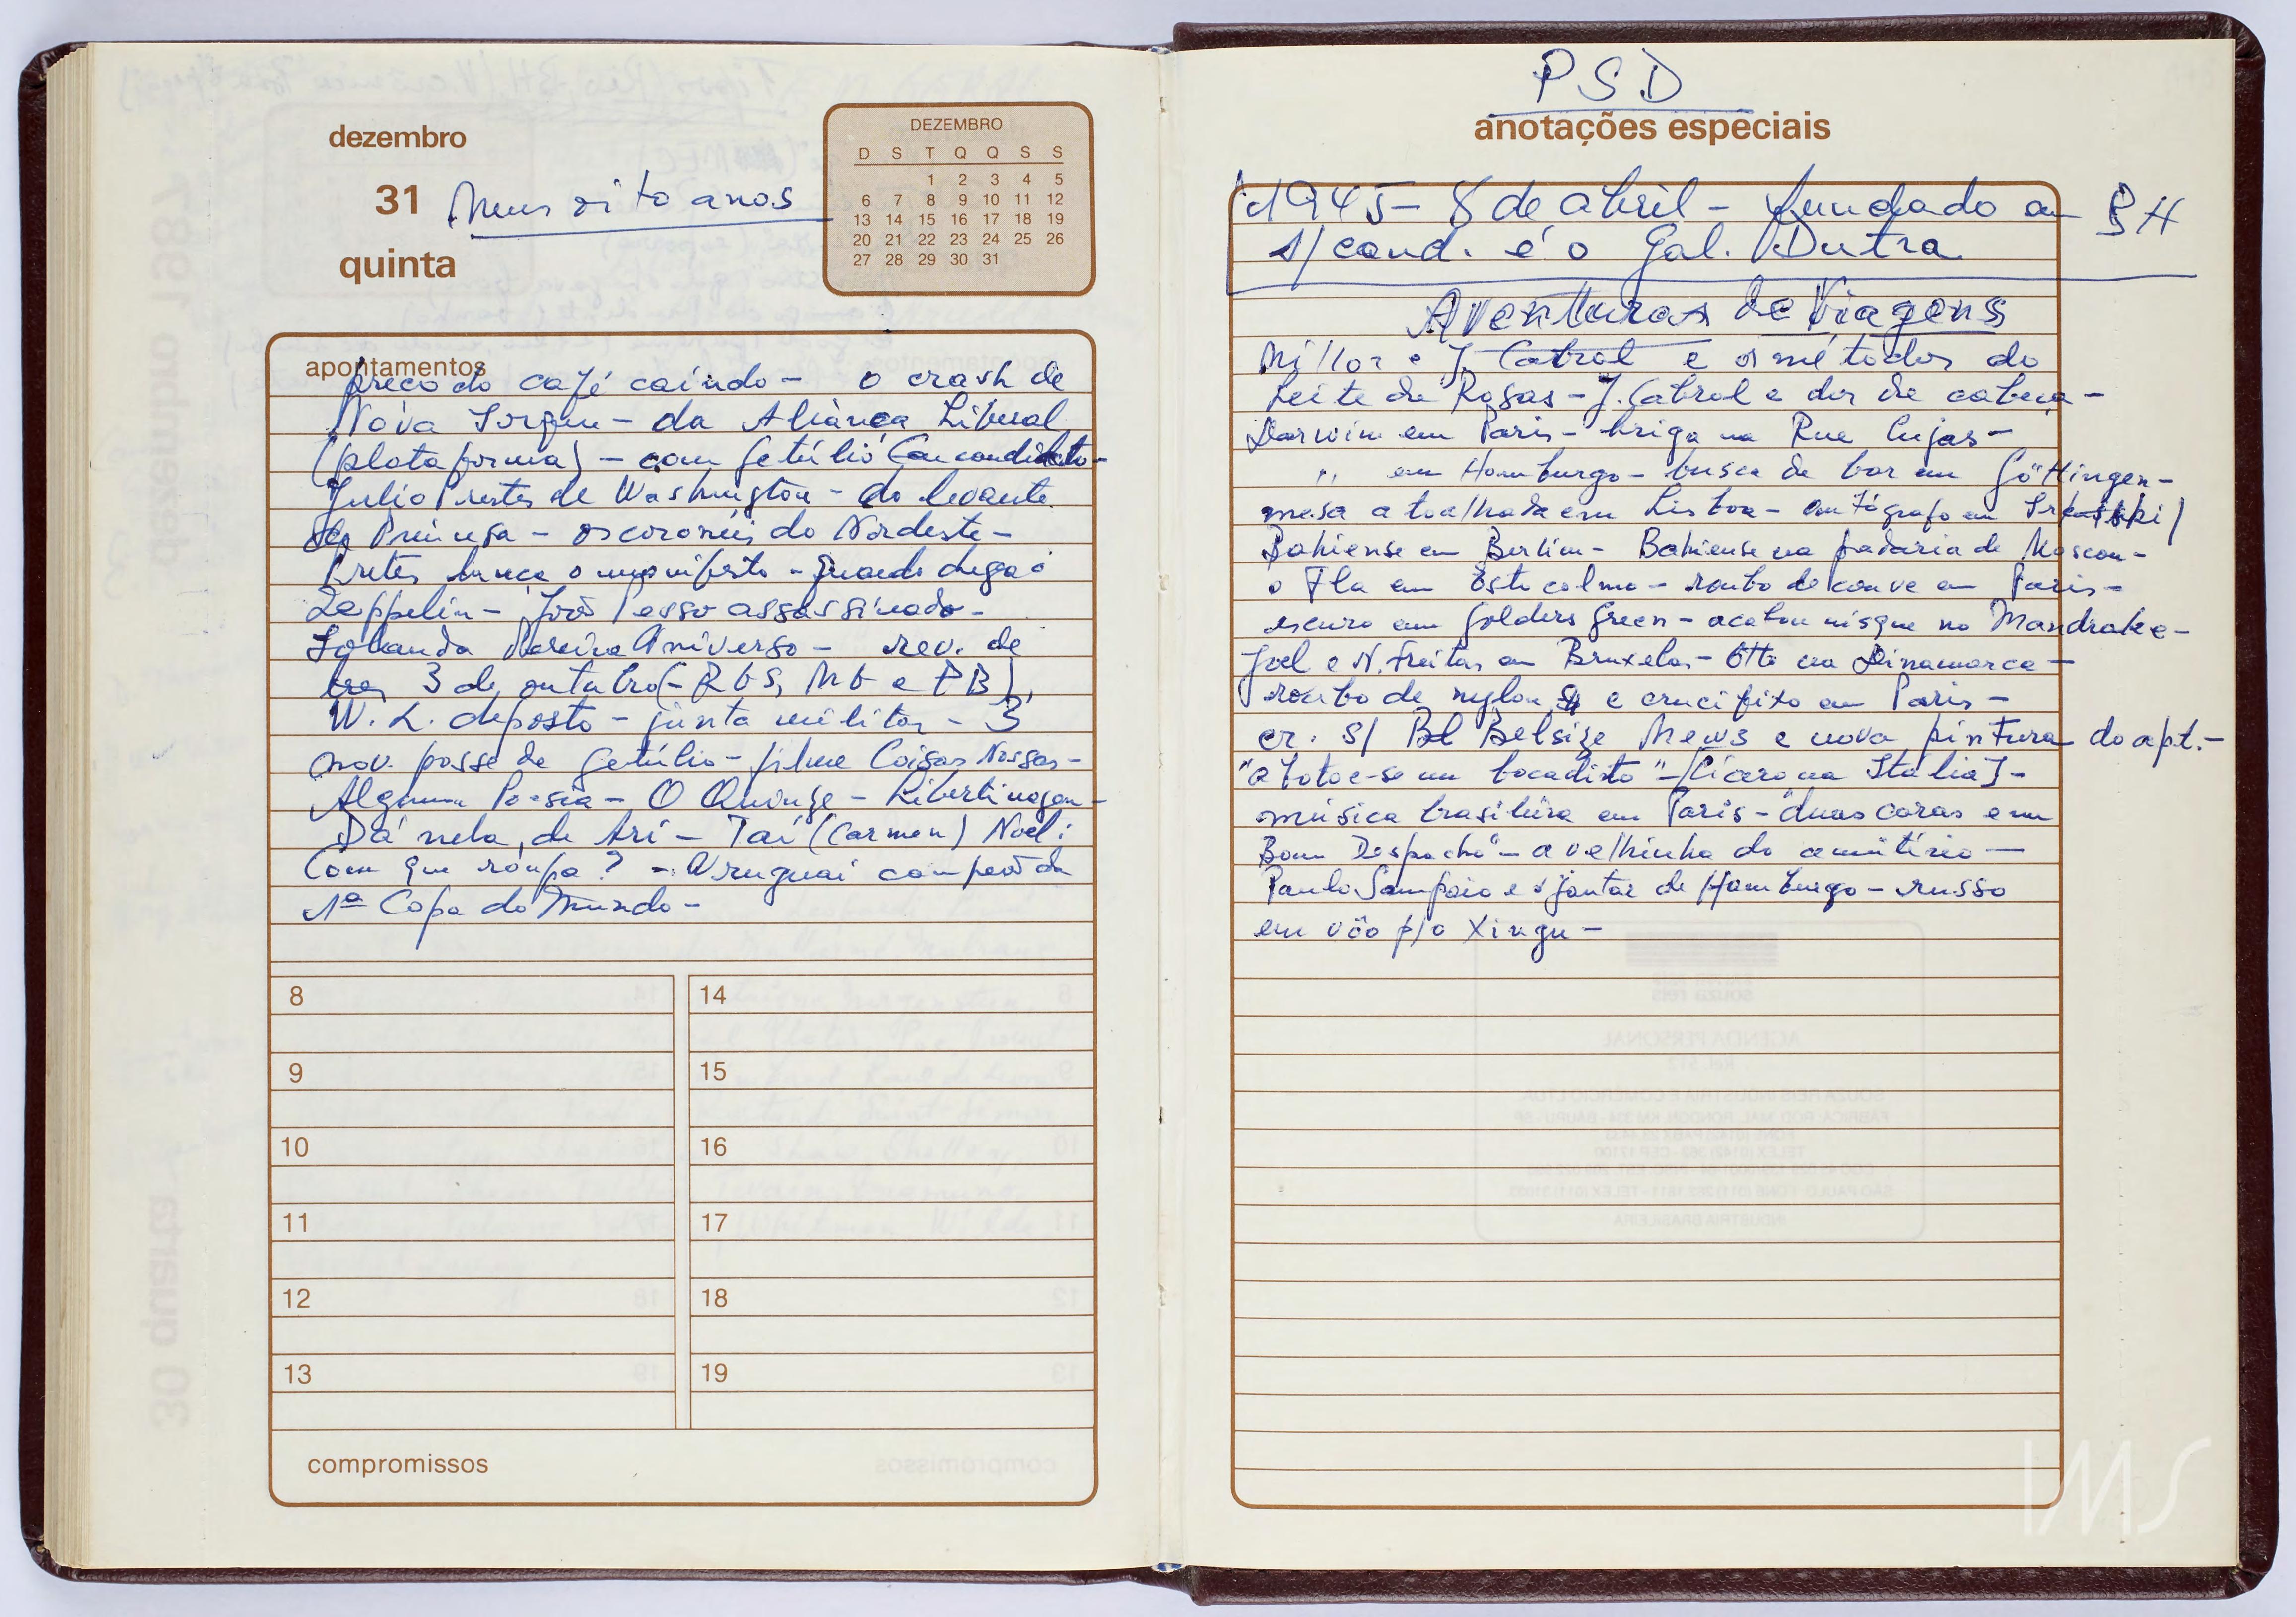 dezembro
31 Meus oito anos
quinta
DEZEMBRO
D S T Q Q S S
1 2 3 4 5
6 7 8 9 10 11 12
13 14 15 16 17 18 19
20 21 22 23 24 25 26
27 28 29 30 31
apontamentos
preço do café caindo - o crash de
Nova Iorque - da Aliança Liberal
(plataforma) - com Getúlio candidato -
Julio Prestes de Washington - do levante
de Princesa - os coronéis do Nordeste -
Prestes lança o manifesto - quando chega o
Zeppelin - João Pessoa assassinado -
Iolanda Pereira Universo - rev. de
3 de outubro (- RGS, MG e PB),
W. L. deposto - junta militar - 3
nov. posse de Getúlio - filme Coisas Nossas -
Alguma Poesia - O Quinze - Libertinagem -
Dá nela, de Ari - Taí (Carmen) Noel:
Com que roupa? - Uruguai campeão da
1ª Copa do Mundo -
8 14
9 15
10 16
11 17
12 18
13 19
compromissos
PSD
anotações especiais
1945 - 8 de abril - fundado em BH
s/ cand. é o Gal. Dutra
Aventuras de Viagens
Millor e J. Cabral e os métodos do
Leite de Rosas - J. Cabral e dor de cabeça -
Darwin em Paris - briga na Rue Cujas -
" em Hamburgo - busca de bar em Göttingen -
mesa atoalhada em Lisboa - autógrafo em
Bahiense em Berlim - Bahiense na padaria de Moscou -
o Fla em Estocolmo - roubo de couve em Paris -
escuro em Golders Green - acabou uísque no Mandrake -
Joel e N. Freitas em Bruxelas - Otto na Dinamarca -
roubo de nylon e crucifixo em Paris -
cr. s/ Belsize Mews e nova pintura do apt. -
"abotoe-se um bocadito" - [Cícero na Itália] -
música brasileira em Paris - "duas caras em
Bom Despacho" - a velhinha do cemitério -
Paulo Sampaio e o jantar de Hamburgo - russo
em vôo p/o Xingu -
IMS